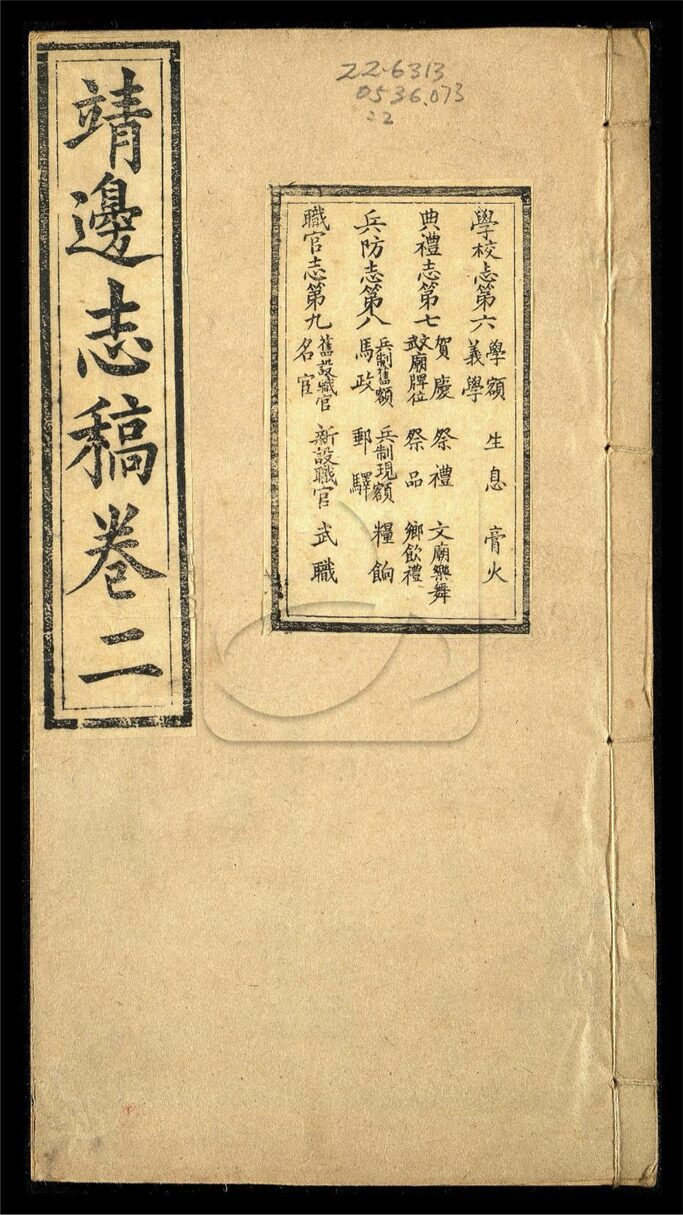 22-6313
0536.073
22
靖邊志稿卷二
學校志第六
學額 生息 膏火
義學
典禮志第七
賀慶 祭禮 文廟樂舞
文武廟牌位 祭品 鄉飲禮
兵防志第八
兵制舊額 兵制現額 糧餉
馬政 郵驛
職官志第九
舊設職官 新設職官 武職
名宦